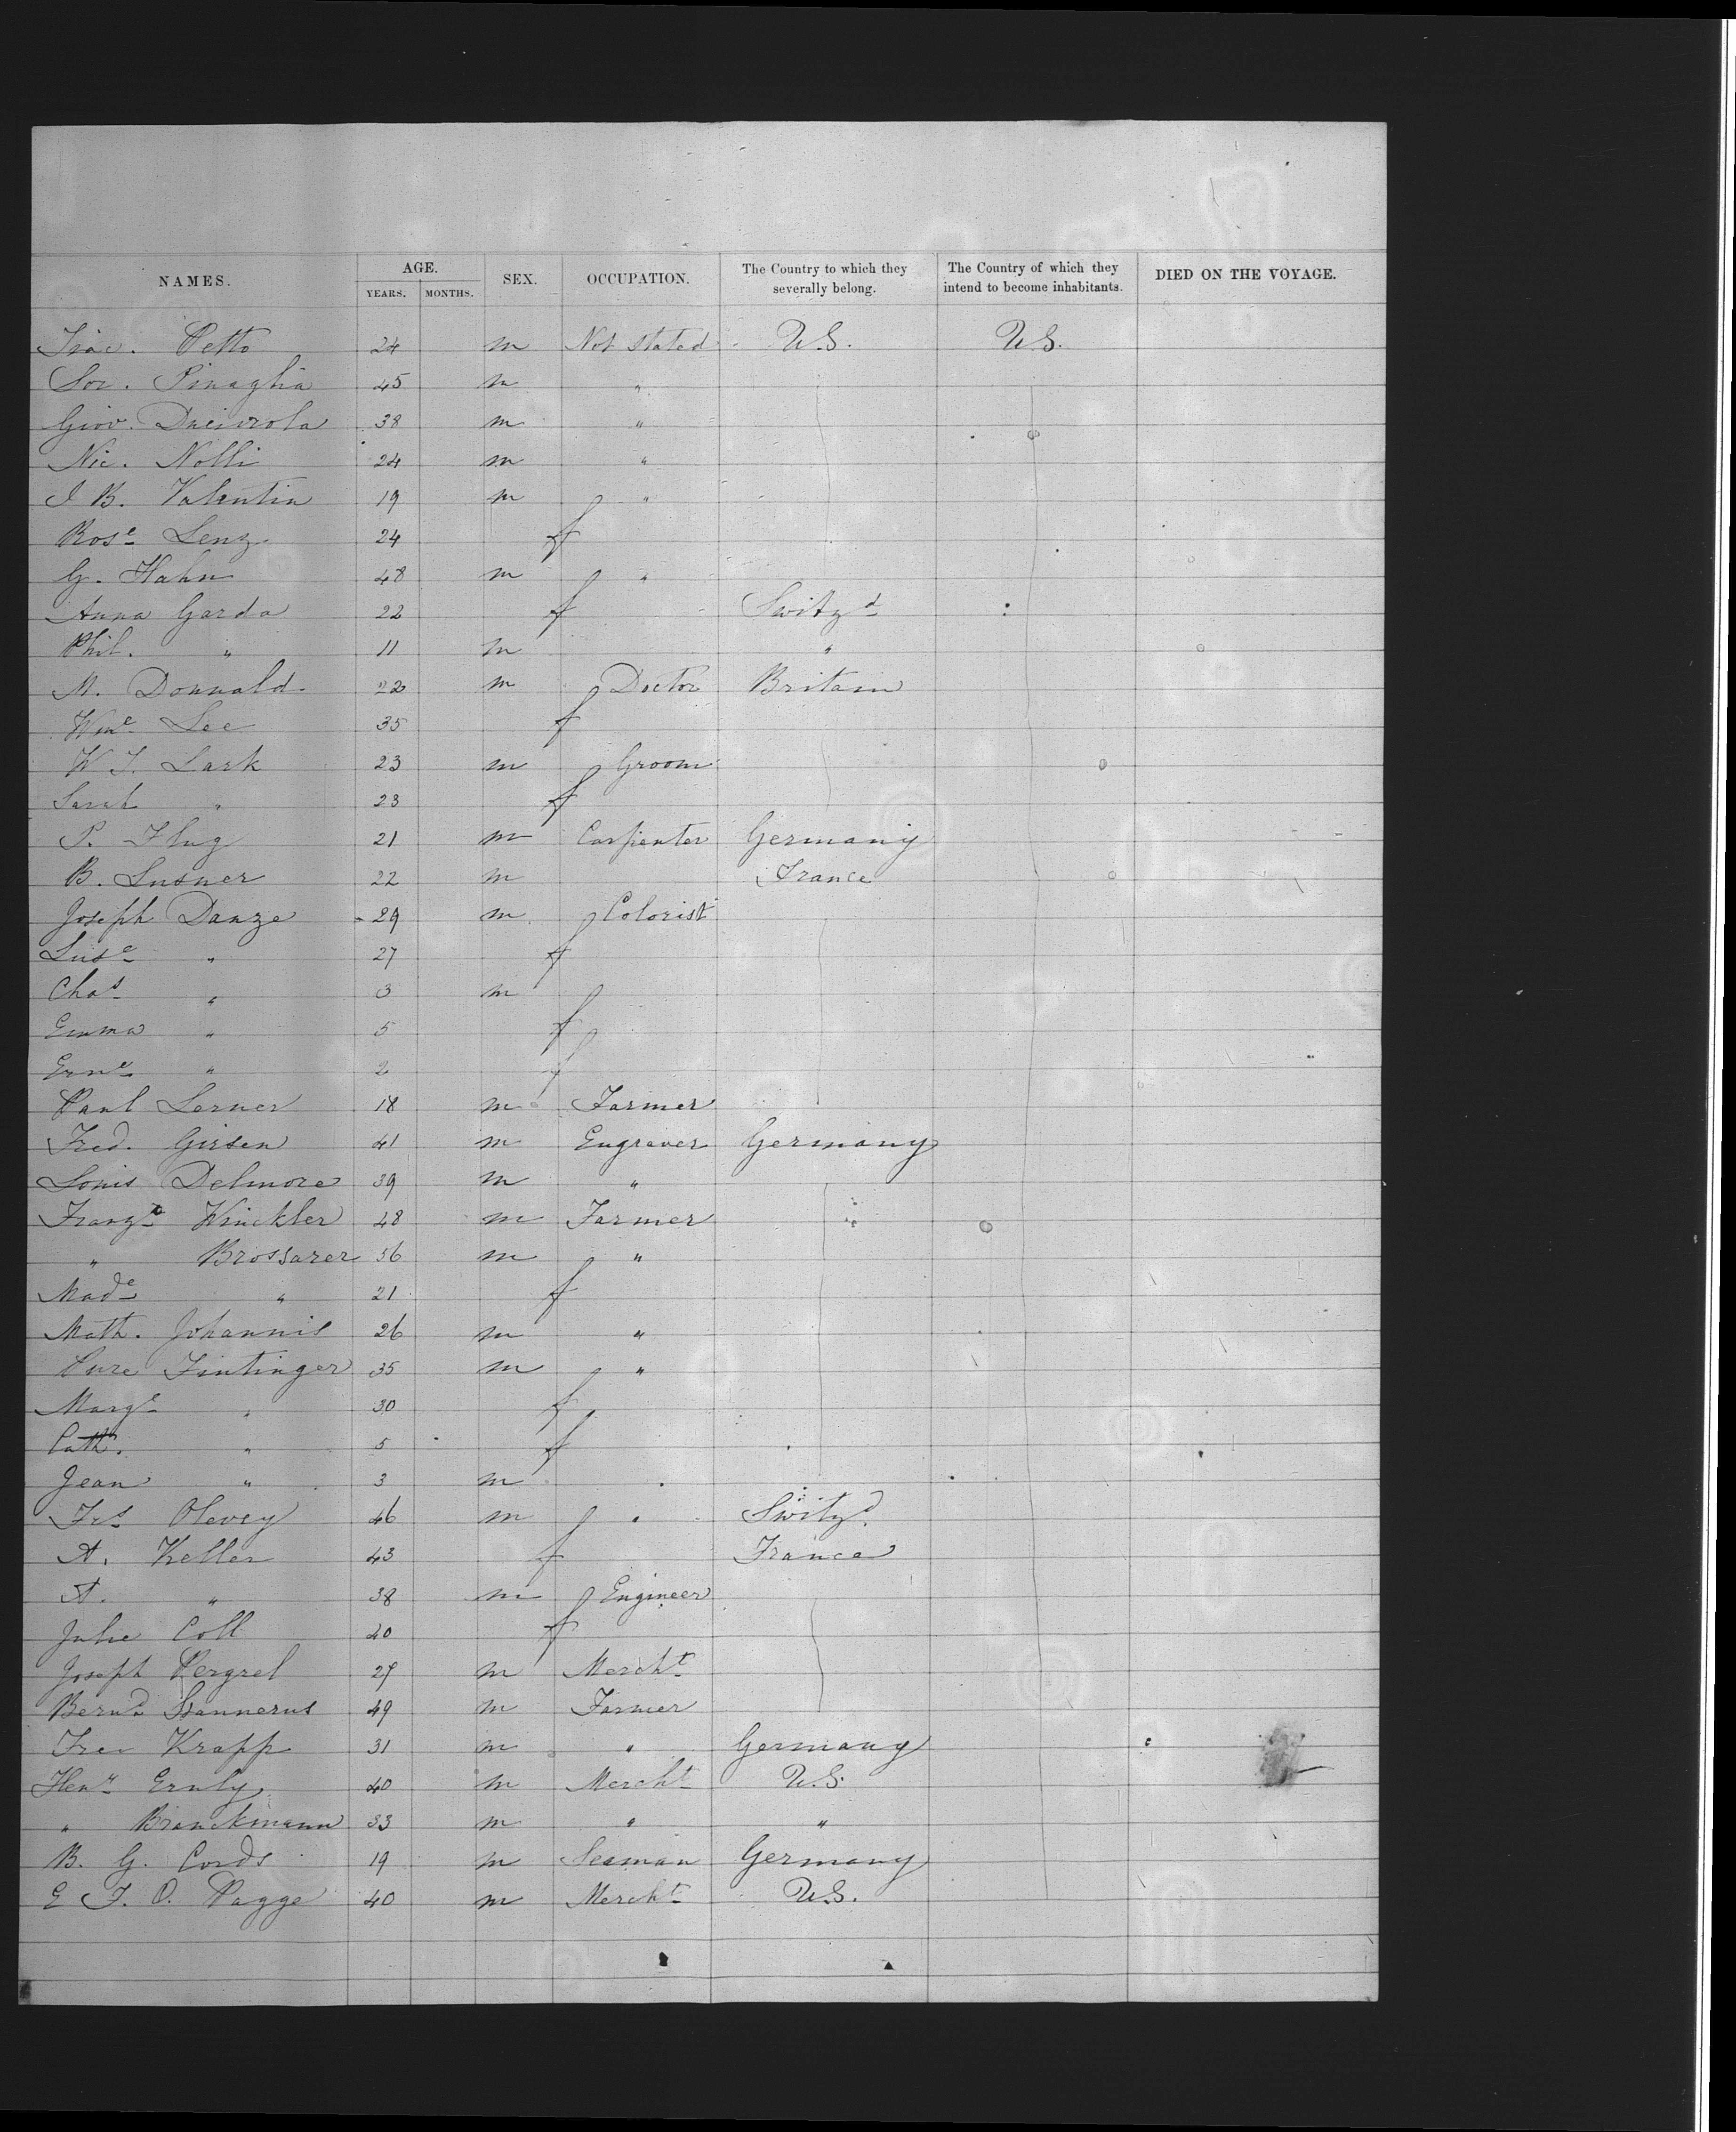 NAMES. AGE. YEARS. MONTHS. SEX. OCCUPATION. The Country to which they severally belong. The Country of which they intend to become inhabitants. DIED ON THE VOYAGE.
Isac. Petto 24 m Not stated U.S. U.S.
Soc. Pinaglia 45 m "
Giov. 38 m "
Nic. Nolli 24 m "
J B. Valentin 19 m "
Rose Lenz 24 f
G. Hahn 48 m "
Anna Garda 22 f Switzd
Phil. " 11 m "
M. Donnald 22 m Doctor Britain
Wme Lee 35 f
W J. Lark 23 m Groom
Sarah " 23 f
P. Flug 21 m Carpenter Germany
B. Lusner 22 m France
Joseph Danze 29 m Colorist
Luse " 27 f
Chas " 3 m
Emma " 5 f
Erne " 2 f
Paul Lerner 18 m Farmer
Fred. Girsen 41 m Engraver Germany
Louis Delmore 39 m "
Winckler 48 m Farmer
" Brossarer 56 m "
Made " 21 f
Math. Johannis 26 m "
Fintinger 35 m "
Marge " 30 f
Cath. " 5 f
Jean " 3 m
Frs Olevey 46 m " Switzd.
A. Keller 43 f France
A. " 38 m Engineer
Julie Coll 40 f
Joseph Pergrel 27 m Mercht
Bernd 49 m Farmer
Krapp 31 m " Germany
Heny Ernly 40 m Mercht U.S.
" Branckmann 33 m " "
B. G. Cords 19 m Seaman Germany
E F. O. Pagge 40 m Mercht U.S.